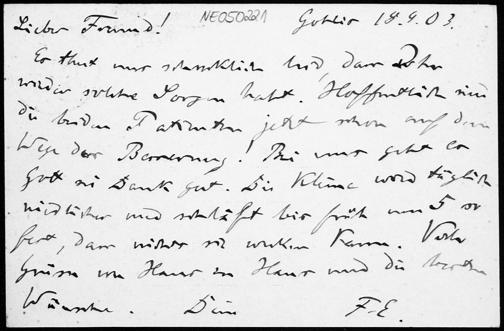 Lieber Freund! NE050221 Gohlis 18.9.03.
Es thut mir schrecklich leid, dass Ihr
wieder solche Sorgen habt. Hoffentlich sind
die beiden Patienten jetzt schon auf dem
Wege der Besserung! Bei uns geht es
Gott sei Dank gut. Die Kleine wird täglich
niedlicher und schläft bis früh um 5 so
fest, dass nichts sie wecken kann. Viele
Grüsse von Haus zu Haus und die besten
Wünsche. Dein F.E.